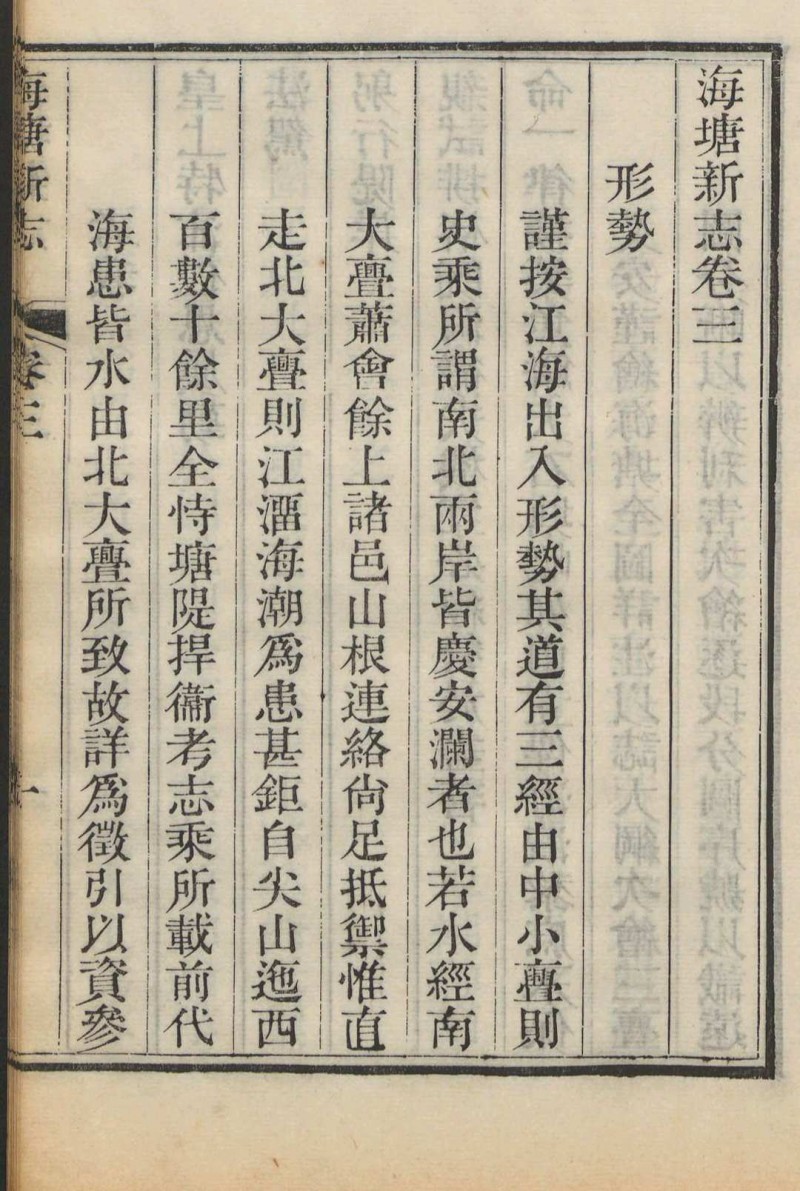 海塘新志卷三
形勢
謹按江海出入形勢其道有三經由中小亹則
史乘所謂南北兩岸皆慶安瀾者也若水經南
大亹蕭會餘上諸邑山根連絡尙足抵禦惟直
走北大亹則江溜海潮爲患甚鉅自尖山迤西
百數十餘里全恃塘隄捍衞考志乘所載前代
海患皆水由北大亹所致故詳爲徵引以資參
海塘新志
卷三
一